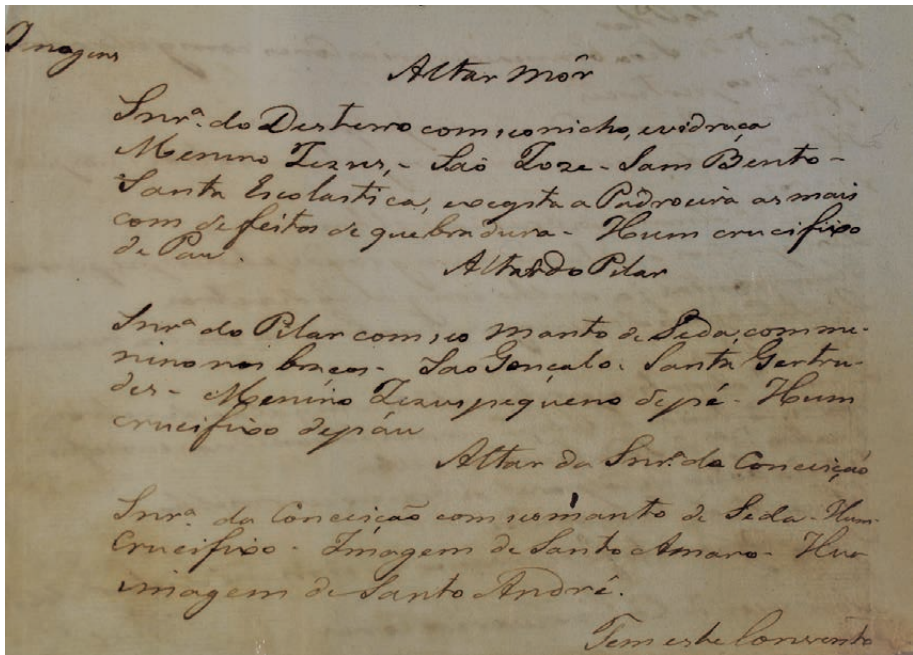 Imagens
Altar Môr
Snrª. do Desterro com seo nicho, evidraça
Menino Jezus, - Saõ Joze - Sam Bento -
Santa Escolastica, exepta a Padroeira as mais
com defeitos de quebradura - Hum crucifixo
de Pau.
Altar do Pilar
Snrª do Pilar com seo manto de Seda, com me-
nino nos braços - Sao Gonçalo. Santa Gertru-
des - Menino Jezus pequeno de pé - Hum
crucifixo de páu
Altar da Snrª. da Conceição
Snrª. da Conceição com seo manto de Seda - Hum
Crucifixo - Imagem de Santo Amaro - Hua
imagem de Santo André.
Tem este Convento